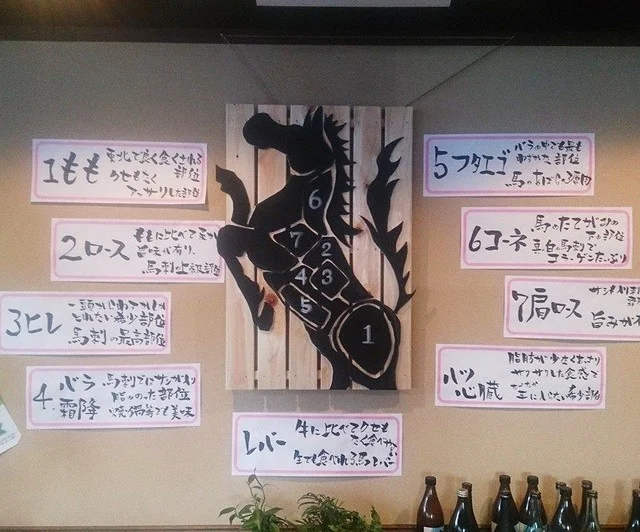 1もも
東北で良く食べられる
部位
クセもなく
アッサリした部位
2ロース
ももに比べて
旨味が有り、
馬刺上級部位
3ヒレ
一頭からわずかしか
とれない希少部位
馬刺の最高部位
4.バラ
霜降
馬刺では
脂ののった部位
焼物でも美味
5フタエゴ
バラの中でも最も
部位
馬のあばら3枚肉
6コーネ
馬のたてがみの
下の部位
真白馬刺で
コラーゲンたっぷり
7肩ロース
旨みが
ハツ
心臓
脂肪が少なくあっさり
サクサクした食感で
希少部位
レバー
牛に比べてクセも
なく食べ
生でも食べれる馬レバー
6
7
2
4
3
5
1